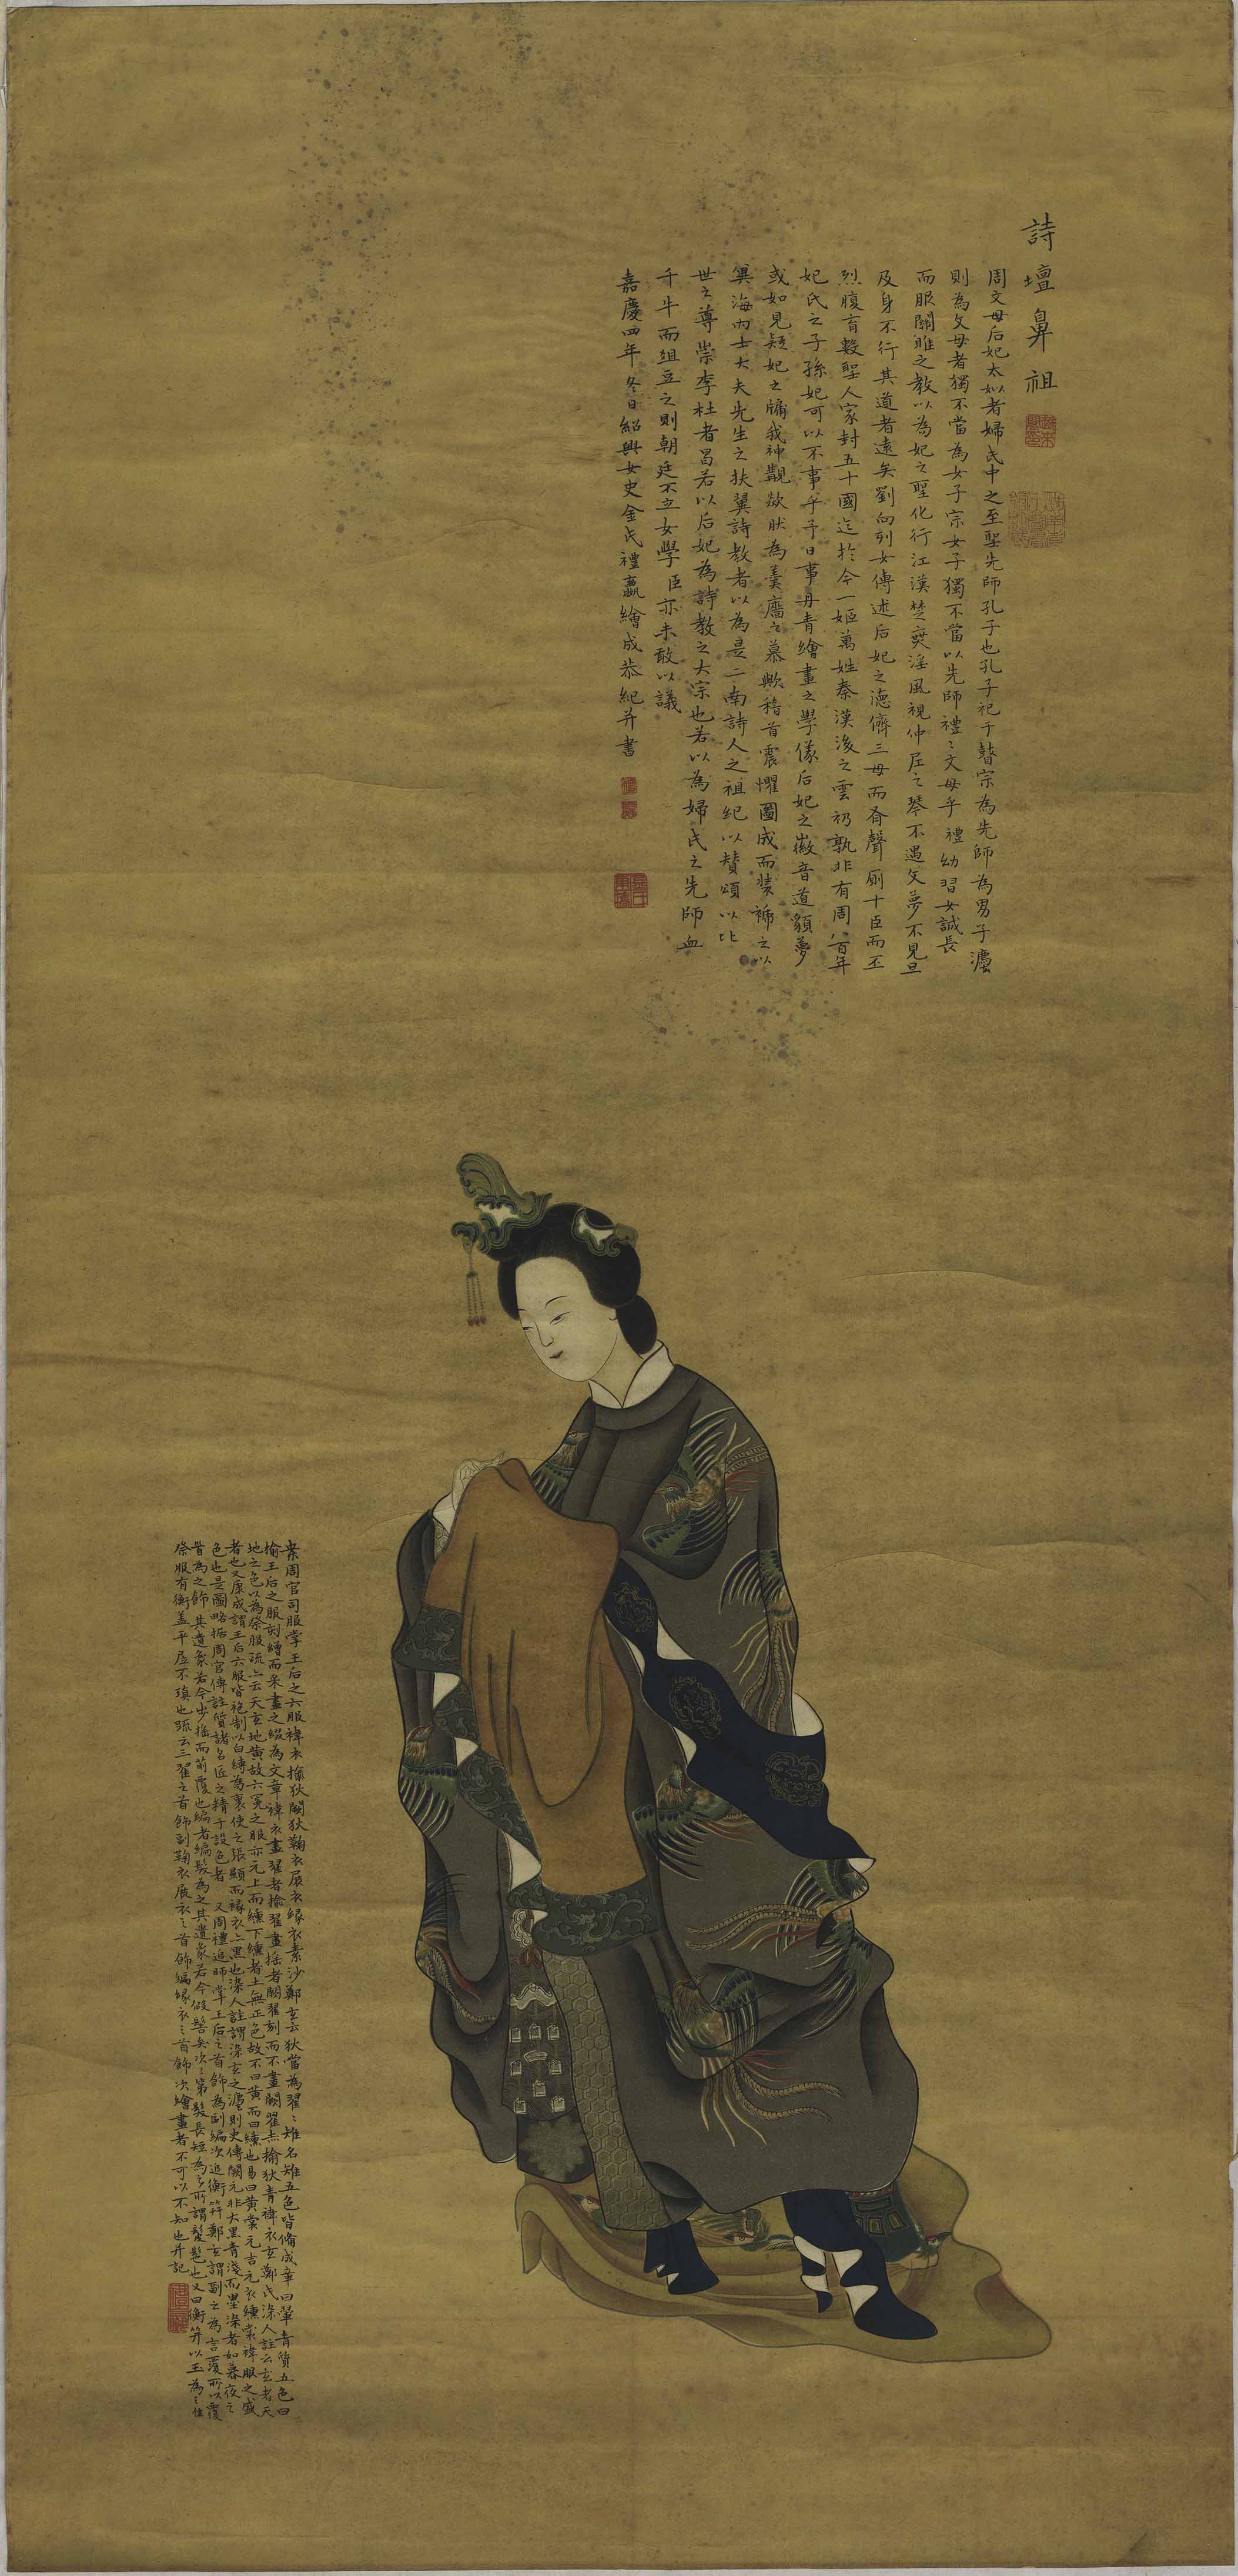 詩壇鼻祖
周文母后妃太姒者婦氏中之至聖先師孔子也孔子祀于瞽宗為先師為男子灋
則為文母者獨不當為女子宗女子獨不當以先師禮〻文母乎禮幼習女誡長
而服關雎之教以為妃之聖化行江漢楚奠淫風視仲尼之琴不遇文夢不見旦
及身不行其道者遠矣劉向列女傳述后妃之德儕三母而胥聲厠十臣而丕
烈腹育數聖人家封五十國迄於今一姬萬姓秦漢後之雲礽孰非有周八百年
妃氏之子孫妃可以不事乎予日事丹青繪畫之學儀后妃之徽音道貌夢
或如見疑妃之牖我神覯歘肰為羹廧之慕歟稽首震懼圖成而裝褫之以
兾海內士大夫先生之扶翼詩教者以為是二南詩人之祖紀以贊頌以比
世之尊崇李杜者曷若以后妃為詩教之大宗也若以為婦氏之先師血
千牛而俎豆之則朝廷不立女學臣亦未敢以議
嘉慶四年冬日紹興女史金氏禮嬴繪成恭紀并書
案周官司服掌王后之六服褘衣揄狄闕狄鞠衣展衣緣衣素沙鄭玄云狄當為翟〻雉名雉五色皆備成章曰翬青質五色曰
揄王后之服刻繒而采畫之綴為文章褘衣畫翬者揄翟畫搖者闕翟刻而不畫闕翟赤揄狄青褘衣玄鄭氏染人註云玄者天
地之色以為祭服疏云天玄地黃故六冕之服亦元上而纁下纁者土無正色故不曰黃而曰纁也易曰黃裳元吉元衣纁裳褘服之盛
者也又康成謂王后六服皆袍制以白縳為裏使之張顯而緣衣〻黑也染人註謂染玄之灋則史傳闕元非大黑青淺而墨染者如暮夜之
色也是圖略据周官傳註質諸名匠之精于設色者 又周禮追師掌王后之首飾為副編次追衡笄鄭玄謂副之為言覆所以覆
首為之飾其遺象若今步搖而前覆也編者編髮為之其遺象若今假髻矣次〻第髮長短為之所謂髲髢也又曰衡笄以玉為之住
祭服有衡蓋平居不瑱也疏云三翟之首飾副鞠衣展衣之首飾編緣衣之首飾次繪畫者不可以不知也并記